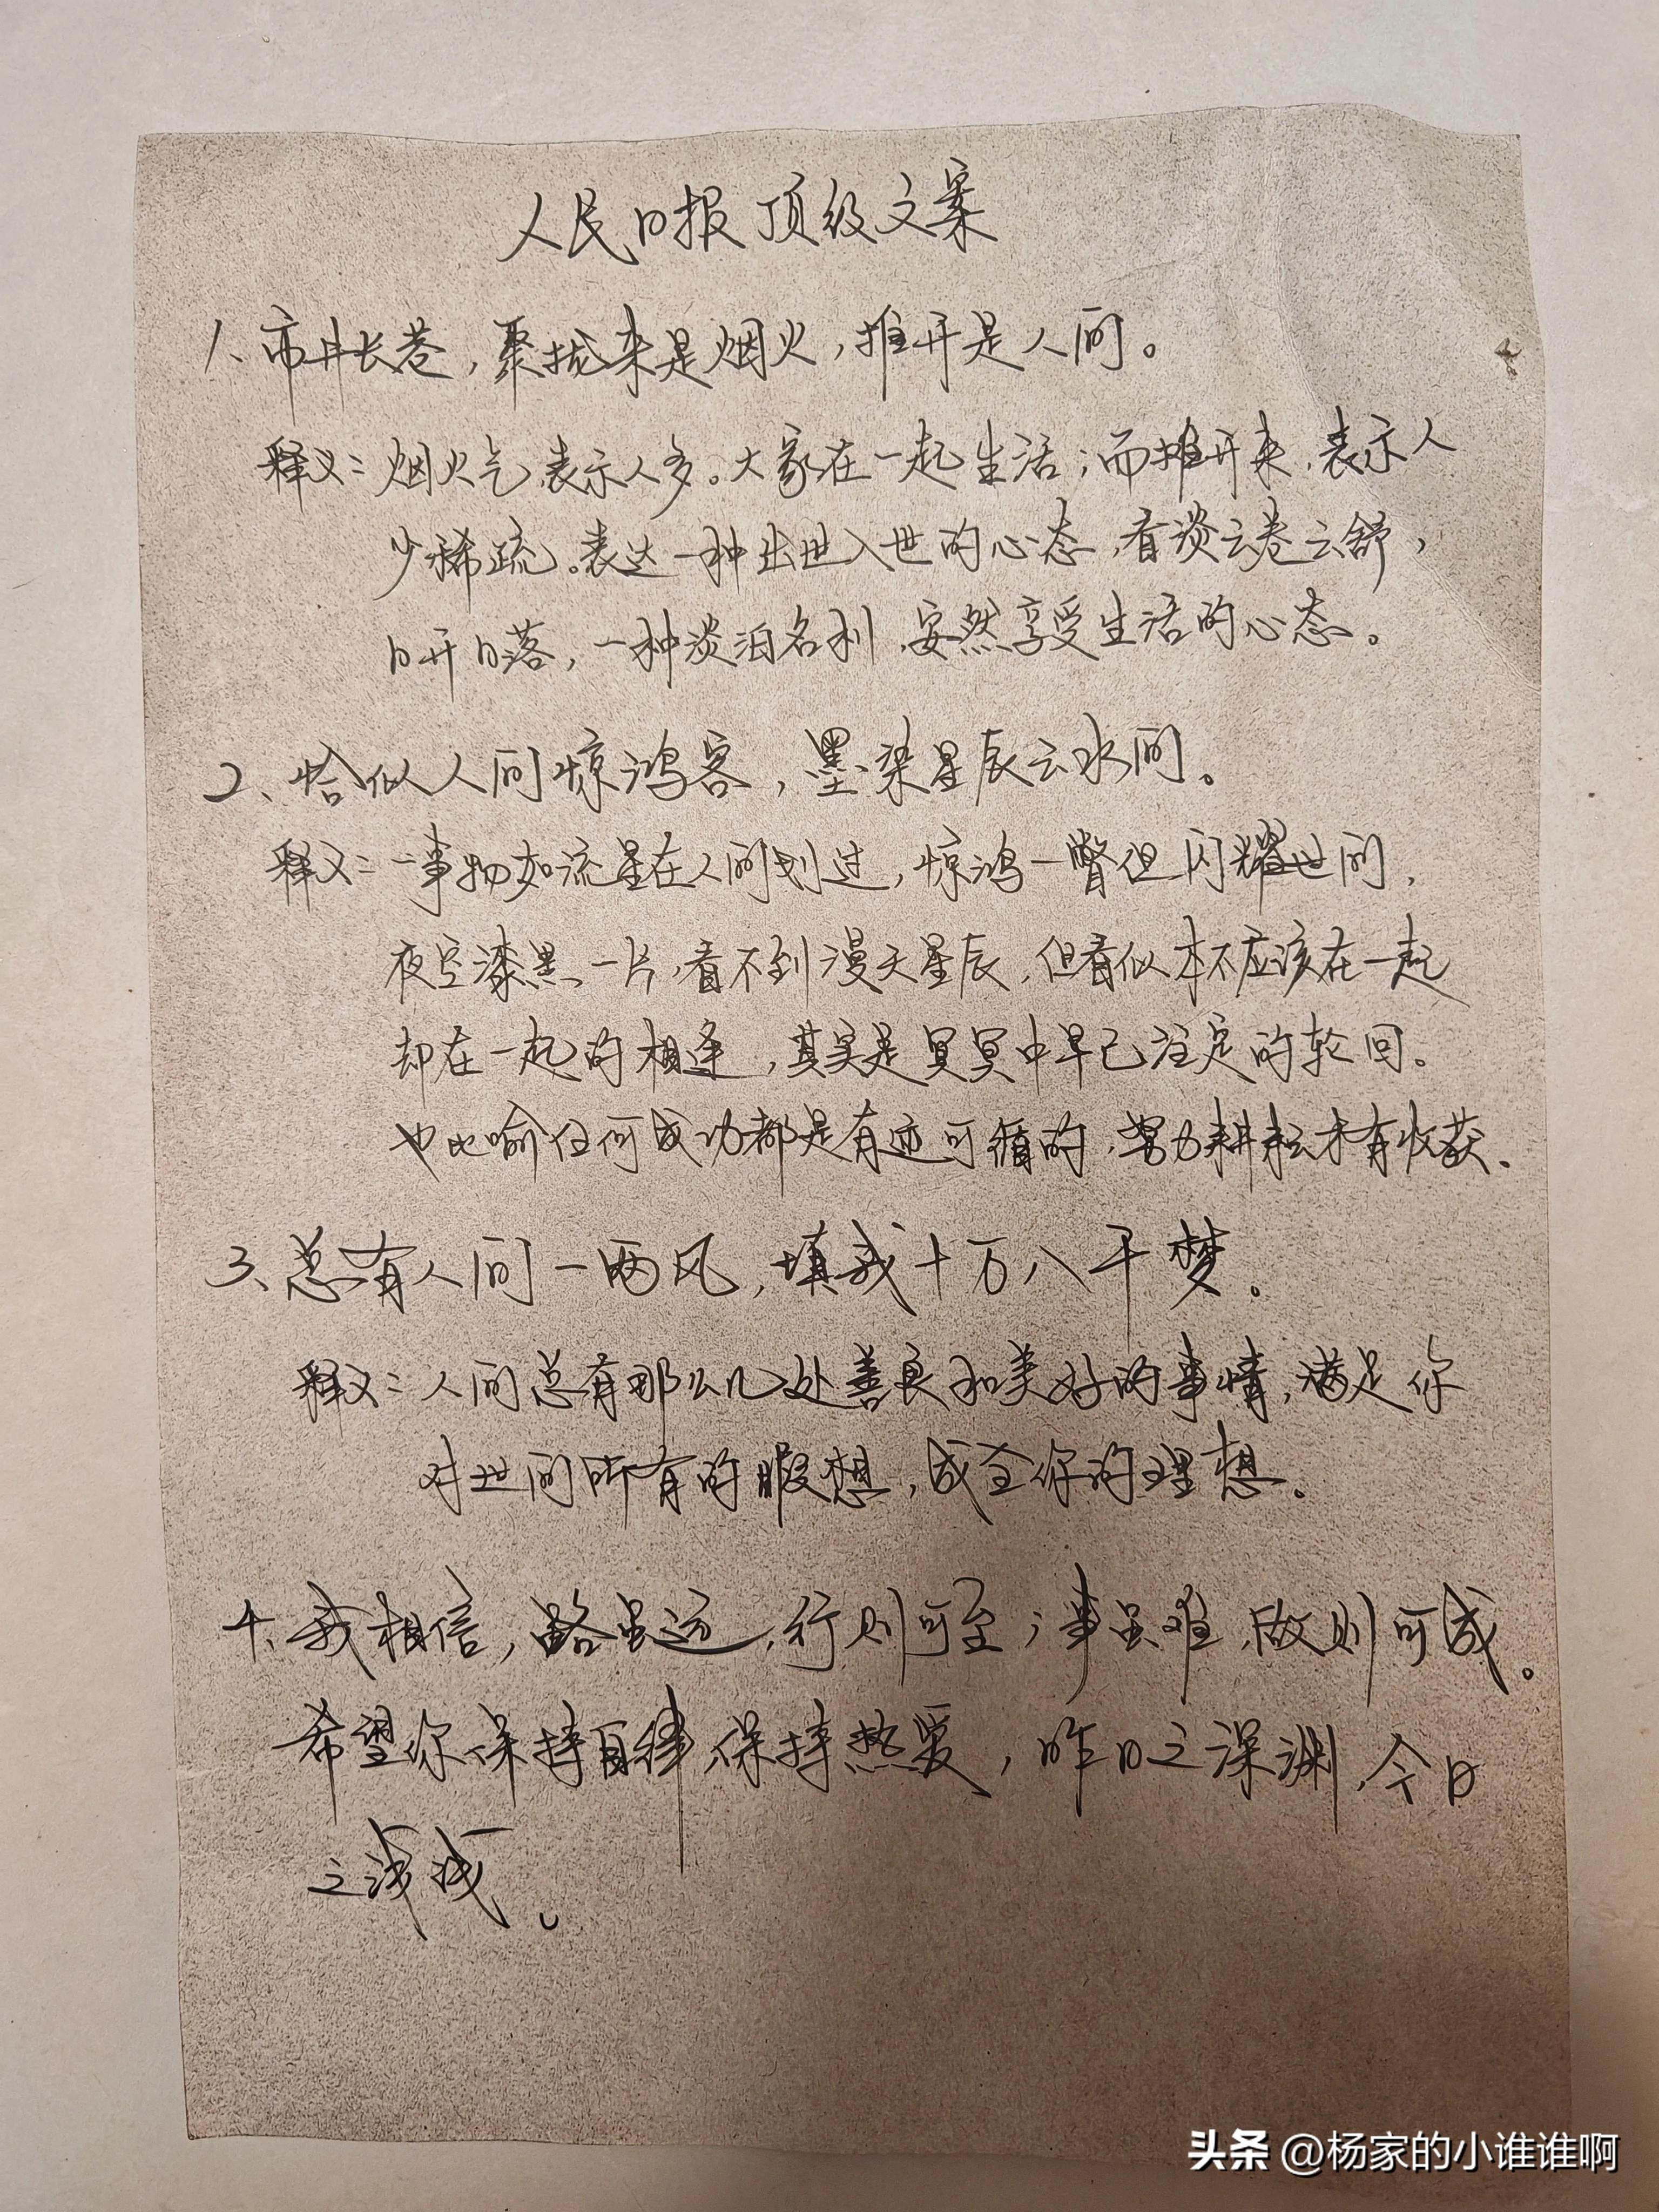 人民日报顶级文案
1、市井长巷，聚拢来是烟火，推开是人间。
释义：烟火气，表示人多。大家在一起生活；而摊开来，表示人
少稀疏。表达一种出世入世的心态，看淡云卷云舒，
日开日落，一种淡泊名利，安然享受生活的心态。
2、恰似人间惊鸿客，墨染星辰云水间。
释义：一事物如流星在人间划过，惊鸿一瞥但闪耀世间，
夜空漆黑一片，看不到漫天星辰，但看似本不应该在一起
却在一起的相逢，其实是冥冥中早已注定的轮回。
也比喻任何成功都是有迹可循的，努力耕耘才有收获、
3、总有人间一两风，填我十万八千梦。
释义：人间总有那么几处善良和美好的事情，满足你
对世间所有的暇想，成全你的理想。
4、我相信，路虽远，行则可至；事虽难，做则可成。
希望你保持自律，保持热爱，昨日之深渊，今日
之浅浅。
头条 @杨家的小谁谁啊